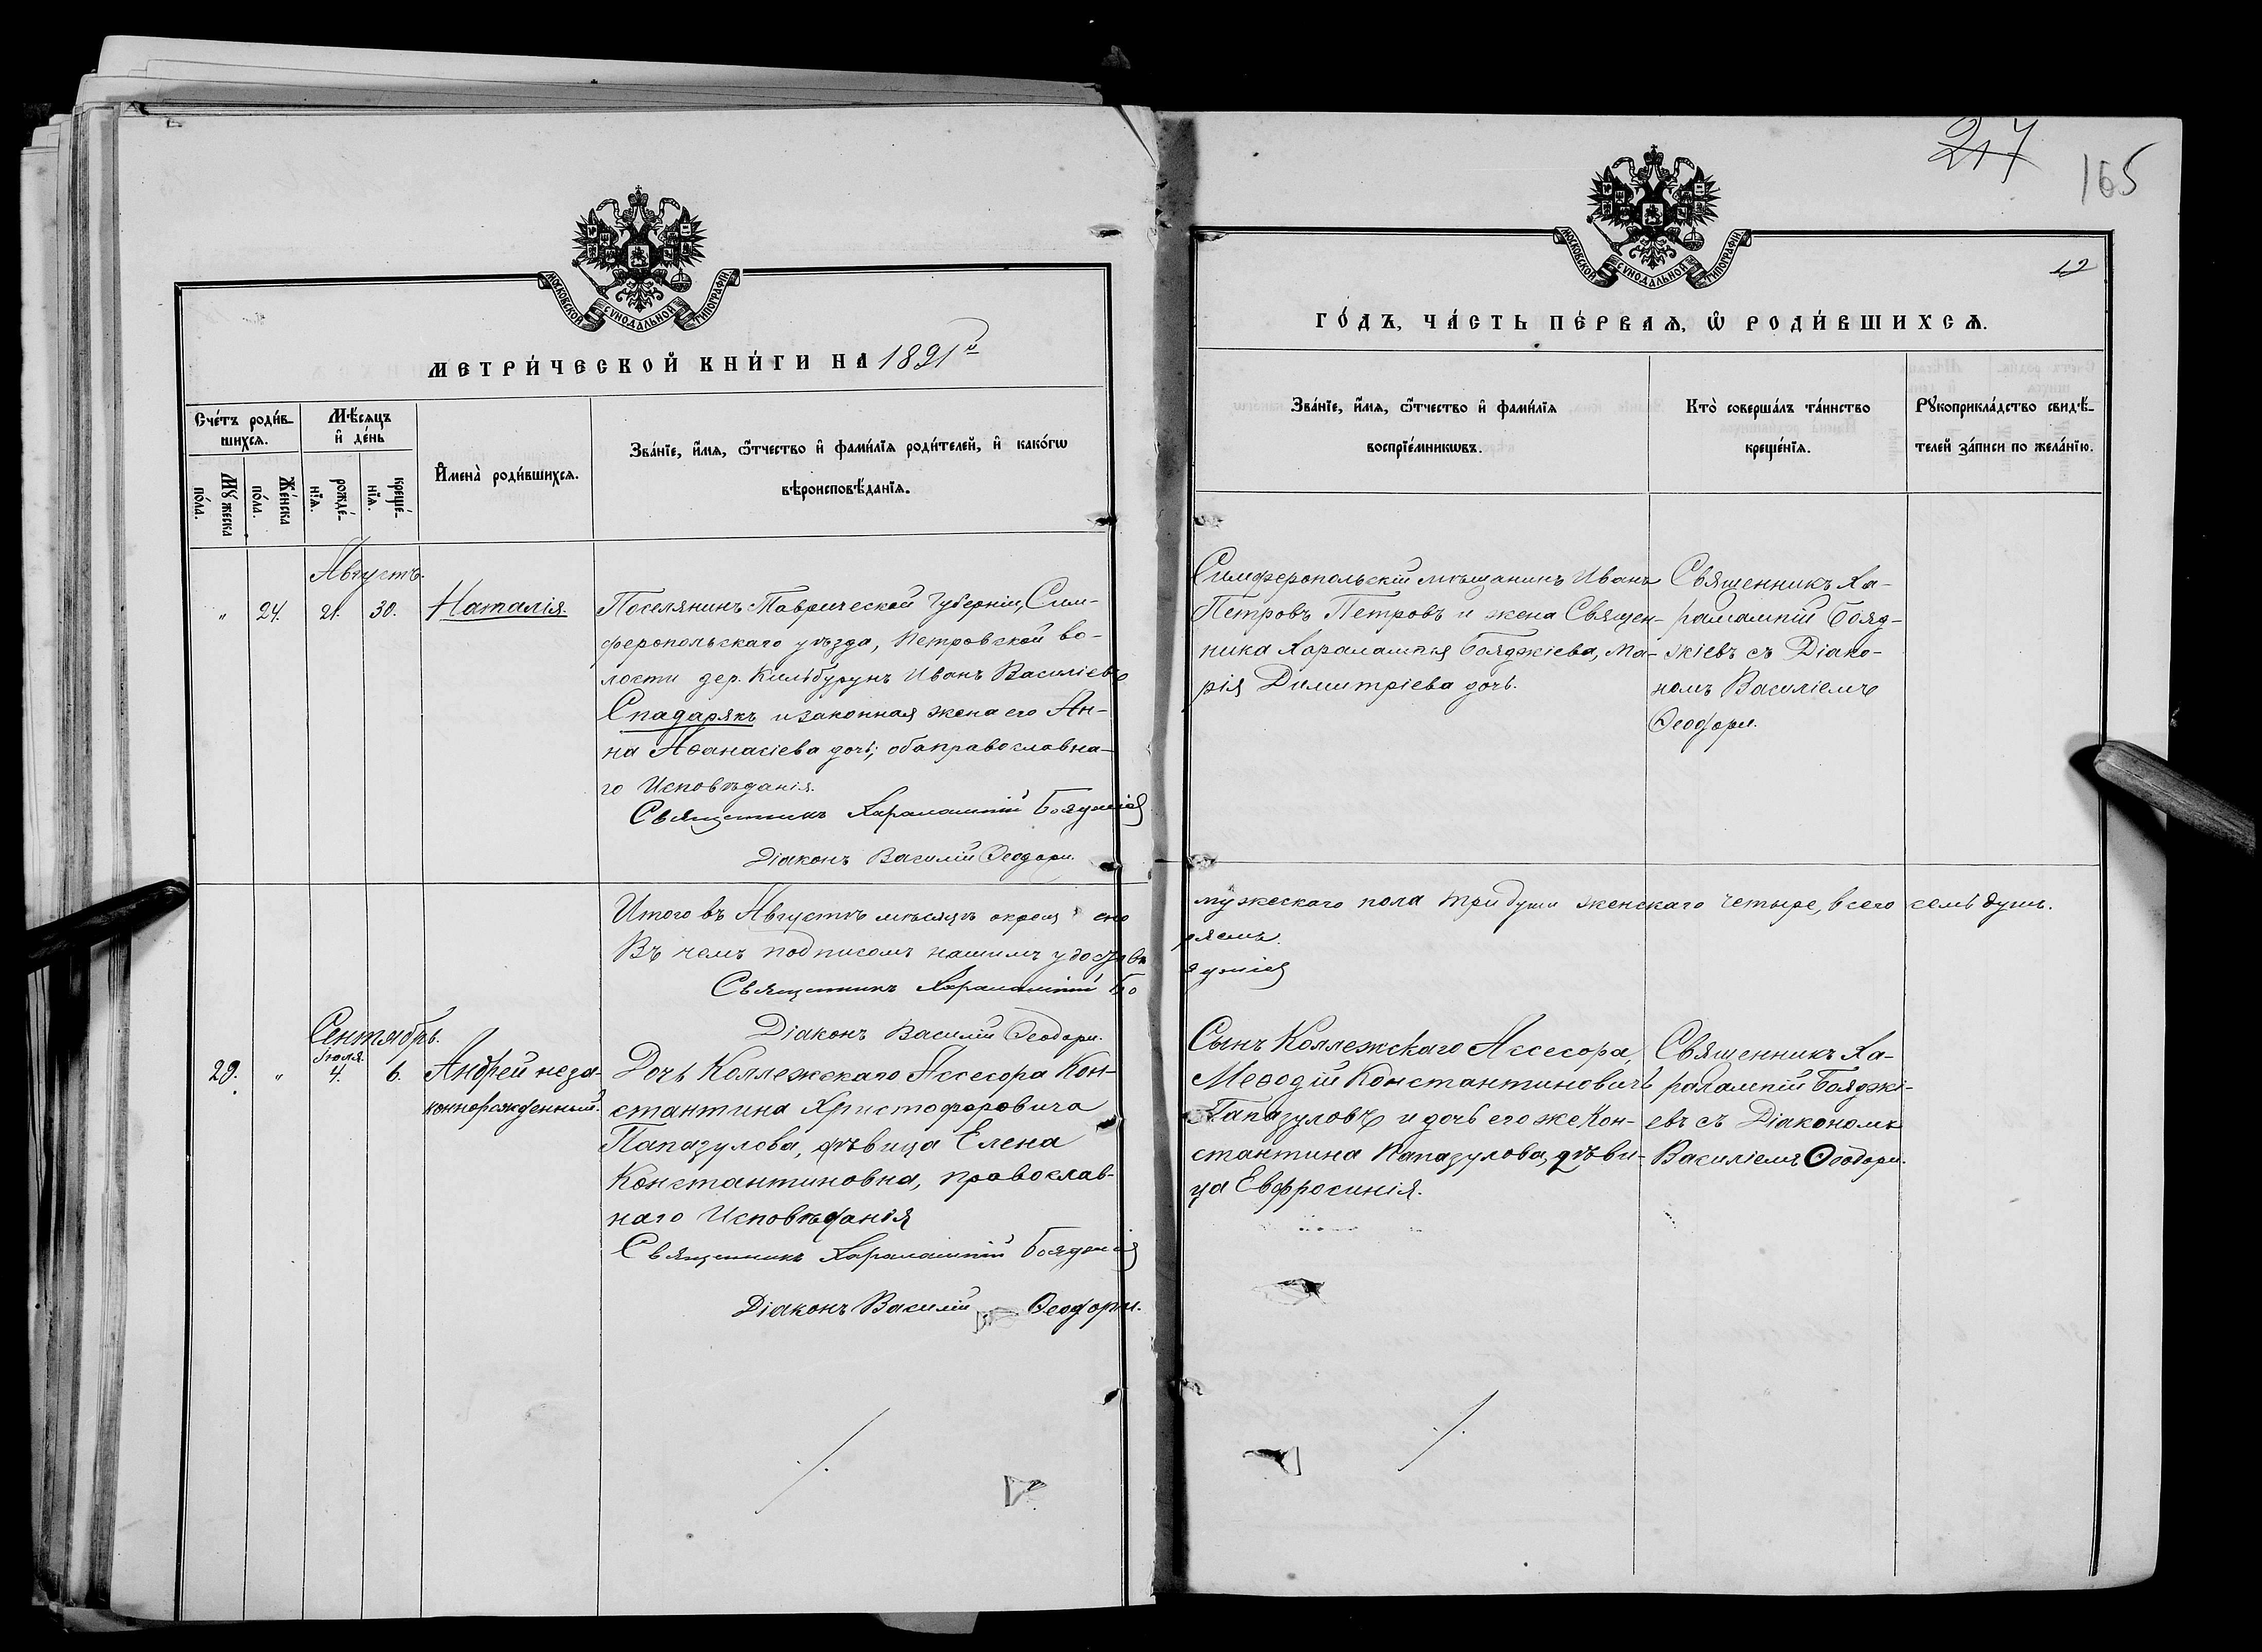 МОСКОВСКОЙ СѴНОДАЛЬНОЙ ТИПОГРАФІИ
МЕТРИ́ЧЕСКОЙ КНИ́ГИ НА 1891й
Сче́тъ роди́в-
шихсѧ.
Мѣ́сѧцъ
и҆ де́нь
Мꙋ́жеска
по́ла.
Же́нска
по́ла.
рожде́-
нїѧ.
креще́-
нїѧ.
И҆мена̀ роди́вшихсѧ.
Зва́нїе, и҆́мѧ, ѻ҆́тчество и҆ фами́лїѧ роди́телей, и҆ како́гѡ
вѣроисповѣ́данїѧ.
Августъ.
" 24. 21. 30. Наталія.
Поселянинъ Таврической Губерніи, Сим-
феропольскаго уѣзда, Петровской во-
лости дер. Кильбурунъ Иванъ Василіевъ
Спадарякъ и законная жена его Ан-
на Аѳанасіева дочь; оба православна-
го Исповѣданія.
Священникъ Харалампій Бояджіев
Діаконъ Василій Ѳеодори.
Итого въ Августѣ мѣсяцѣ окрещено
Въ чемъ подписомъ нашимъ удостовѣ
Священникъ Харалампій Бо
Діаконъ Василій Ѳеодори.
Сентябрь.
Іюля.
29. " 4. 6. Андрей неза-
коннорожденный.
Дочь Коллежскаго Ассесора Кон-
стантина Христофоровича
Папазулова, дѣвица Елена
Константиновна, православ-
наго Исповѣданія
Священникъ Харалампій Бояджіев
Діаконъ Василій Ѳеодори.
217
165
12
МОСКОВСКОЙ СѴНОДАЛЬНОЙ ТИПОГРАФІИ
ГО́ДЪ, ЧА́СТЬ ПЕ́РВАѦ, Ѡ҆ РОДИ́ВШИХСѦ.
Зва́нїе, и҆́мѧ, ѻ҆́тчество и҆ фами́лїѧ
воспрїе́мникѡвъ.
Кто̀ соверша́лъ та́инство
креще́нїѧ.
Рꙋкоприкла́дство свидѣ́-
телей за́писи по жела́нїю.
Симферопольскій мѣщанинъ Иванъ
Петровъ Петровъ и жена Священ-
ника Харалампія Бояджіева, Ма-
рія Димитріева дочь.
Священникъ Ха-
рампій Бояд-
жіевъ съ Діако-
номъ Василіемъ
Ѳеодори.
мужескаго пола три души женскаго четыре, всего семь душъ.
ряемъ.
яджіев
Сынъ Коллежскаго Ассесора,
Меѳодій Константиновичъ
Папазуловъ и дочь его же Кон-
стантина Папазулова, дѣви-
ца Евфросинія.
Священникъ Ха-
ралампій Бояджі-
евъ съ Діакономъ
Василіемъ Ѳеодори.